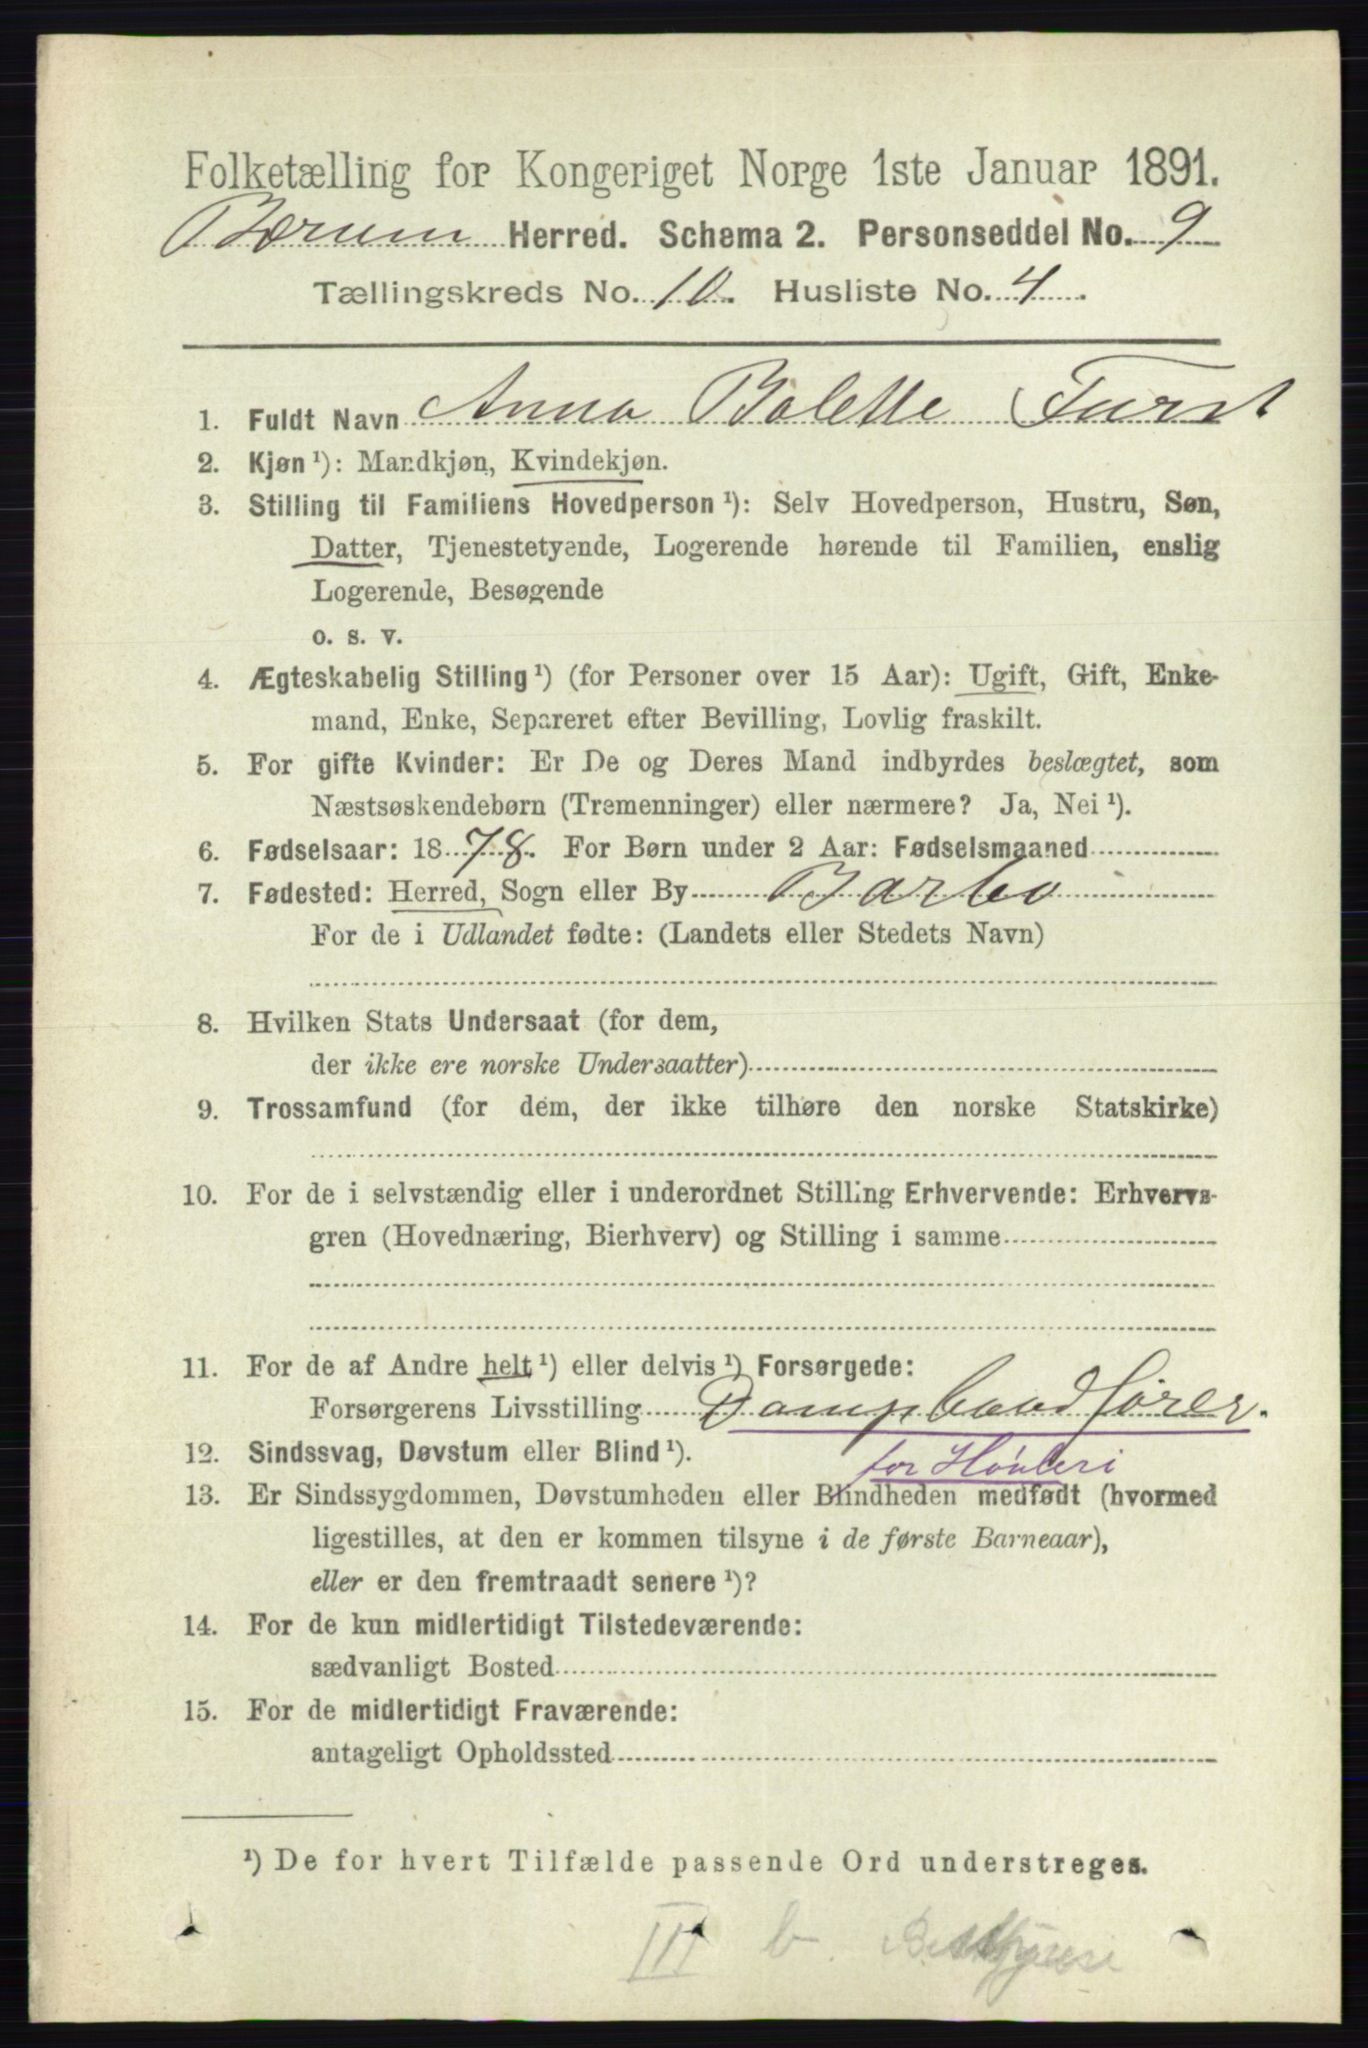 Folketælling for Kongeriget Norge 1ste Januar 1891.
Bærum Herred. Schema 2. Personseddel No. 9
Tællingskreds No. 10. Husliste No. 4.
1. Fuldt Navn Anna Bolette Furst
2. Kjøn ¹): Mandkjøn, Kvindekjøn.
3. Stilling til Familiens Hovedperson ¹): Selv Hovedperson, Hustru, Søn,
Datter, Tjenestetyende, Logerende hørende til Familien, enslig
Logerende, Besøgende
o. s. v.
4. Ægteskabelig Stilling ¹) (for Personer over 15 Aar): Ugift, Gift, Enke-
mand, Enke, Separeret efter Bevilling, Lovlig fraskilt.
5. For gifte Kvinder: Er De og Deres Mand indbyrdes beslægtet, som
Næstsøskendebørn (Tremenninger) eller nærmere? Ja, Nei ¹).
6. Fødselsaar: 1878. For Børn under 2 Aar: Fødselsmaaned
7. Fødested: Herred, Sogn eller By Barbo
For de i Udlandet fødte: (Landets eller Stedets Navn)
8. Hvilken Stats Undersaat (for dem,
der ikke ere norske Undersaatter)
9. Trossamfund (for dem, der ikke tilhøre den norske Statskirke)
10. For de i selvstændig eller i underordnet Stilling Erhvervende: Erhvervs-
gren (Hovednæring, Bierhverv) og Stilling i samme
11. For de af Andre helt ¹) eller delvis ¹) Forsørgede:
Forsørgerens Livsstilling Dampbaadfører.
12. Sindssvag, Døvstum eller Blind ¹).
for
13. Er Sindssygdommen, Døvstumheden eller Blindheden medfødt (hvormed
ligestilles, at den er kommen tilsyne i de første Barneaar),
eller er den fremtraadt senere ¹)?
14. For de kun midlertidigt Tilstedeværende:
sædvanligt Bosted
15. For de midlertidigt Fraværende:
antageligt Opholdssted
¹) De for hvert Tilfælde passende Ord understreges.
III b.